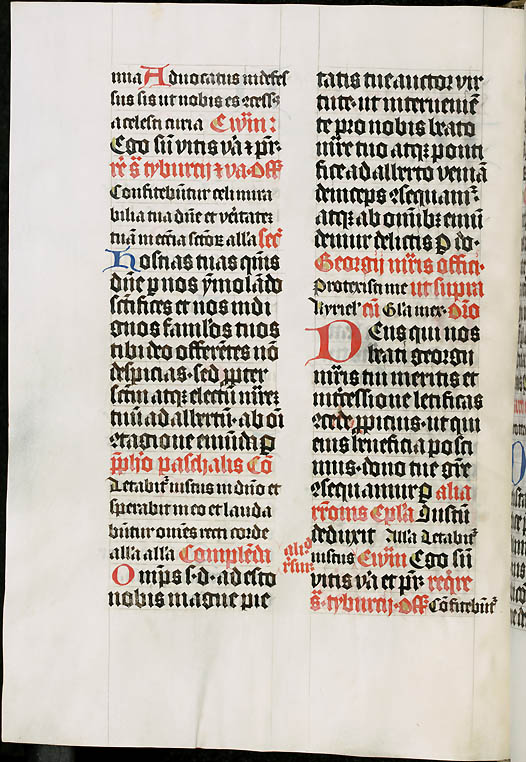 mia Advocatus indefes
sus sis ut nobis es ɔcess9
a celesti curia Ewin:
Ego sū vitis v̄a ⁊ pr̄
re s̄ tyburcij ⁊ va Off
Confitebūtur celi mira
bilia tua dn̄e et v̄itatez
tuā in ecc̄ia sctōꝝ all̄a secr
Hostias tuas qm̄s
dn̄e p nos ȳmolādo
sctīfices et nos indi
gnos famlos tuos
tibi deo offerētes nō
despicias sed ꝓpter
sctm̄ atqꝫ electū mr̄ez
tuū adalbertū ab oī
ɔtagione emūda ꝑ
pplīo paschalis Cō
Letabit̄ iustus in dn̄o et
sperabit in eo et lauda
būtur om̄es recti corde
all̄a all̄a Complēdī
Omps s d adesto
nobis magne pie
tatis tue auctor vir
tute ut interueniē
te pro nobis beato
mr̄e tuo atqꝫ ponti
fice adalberto veniā
deinceps ɔsequam̄
atqꝫ ab om̄ibꝫ emū
demur delictis ꝑ do
Georgij mr̄is offici
Protexisti me ut supra
kyriel cū Gla inex Oro
Deus qui nos
beati georgij
mr̄is tui meritis et
int̄cessione letificas
ɔcede ꝓpicius ut qui
eius beneficia posci
mus dono tue grē
ɔsequamur ꝑ alia
rr̄oms Ep̄la Iustū
deduxit All̄a Letabit̄
iustus Ewin Ego sū
vitis v̄a et pr̄ reqre
s̄ tyburcij Off Cōfitebūt̄